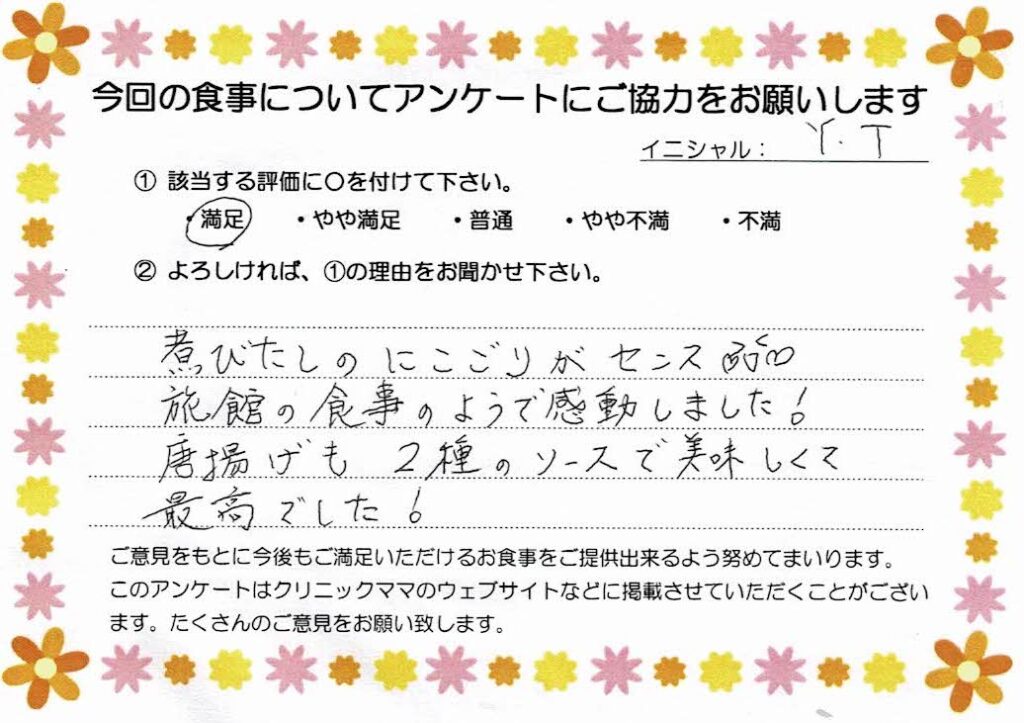 今回の食事についてアンケートにご協力をお願いします
イニシャル： Y.T
① 該当する評価に〇を付けて下さい。
・満足 ・やや満足 ・普通 ・やや不満 ・不満
② よろしければ、①の理由をお聞かせ下さい。
煮びたしの にこごりが センス
旅館の食事のようで感動しました！
唐揚げも 2種のソースで美味しくて
最高でした！
ご意見をもとに今後もご満足いただけるお食事をご提供出来るよう努めてまいります。
このアンケートはクリニックママのウェブサイトなどに掲載させていただくことがござい
ます。たくさんのご意見をお願い致します。